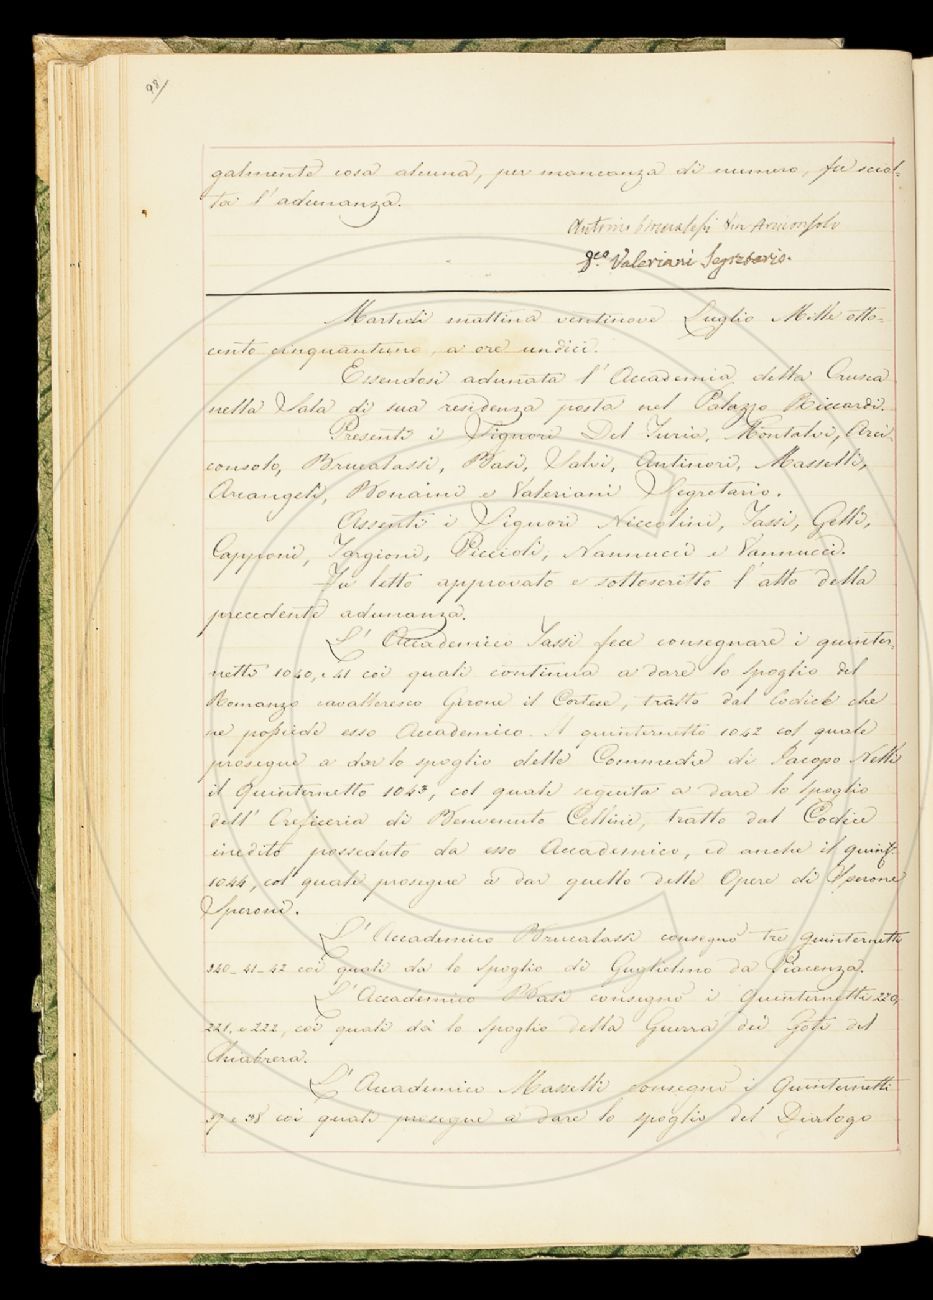 98
galmente cosa alcuna, per mancanza di numero, fu sciol-
ta l'adunanza.
Antonio Brucalassi Vice Arciconsolo
Dco. Valeriani Segretario.
Martedì mattina ventinove Luglio Mille otto-
cento cinquantuno, a ore undici.
Essendosi adunata l'Accademia della Crusca
nella Sala di sua residenza posta nel Palazzo Riccardi.
Presenti i Signori Del Furia, Montalvi, Arci-
consolo, Brucalassi, Basi, Salvi, Antinori, Masselli,
Arcangeli, Bonaini e Valeriani Segretario.
Assenti i Signori Niccolini, Tassi, Gelli,
Capponi, Targioni, Piccioli, Nannucci e Vannucci.
Fu letto approvato e sottoscritto l'atto della
precedente adunanza.
L'Accademico Tassi fece consegnare i quinter-
netti 1040, e 41 coi quali continua a dare lo spoglio del
Romanzo cavalleresco Girone il Cortese, tratto dal Codice che
ne possiede esso Accademico. Il quinternetto 1042 col quale
prosegue a dar lo spoglio delle Commedie di Jacopo Nelli
il Quinternetto 1043, col quale seguita a dare lo spoglio
dell'Oreficeria di Benvenuto Cellini, tratto dal Codice
inedito posseduto da esso Accademico, ed anche il quint.
1044, col quale prosegue a dar quello delle Opere di Sperone
Speroni.
L'Accademico Brucalassi consegnò tre quinternetti
340-41-42 coi quali dà lo spoglio di Guglielmo da Piacenza.
L'Accademico Basi consegnò i Quinternetti 220,
221, e 222, coi quali dà lo spoglio della Guerra dei Goti del
Chiabrera.
L'Accademico Masselli consegnò i Quinternetti
37 e 38 coi quali prosegue a dare lo spoglio del Dialogo